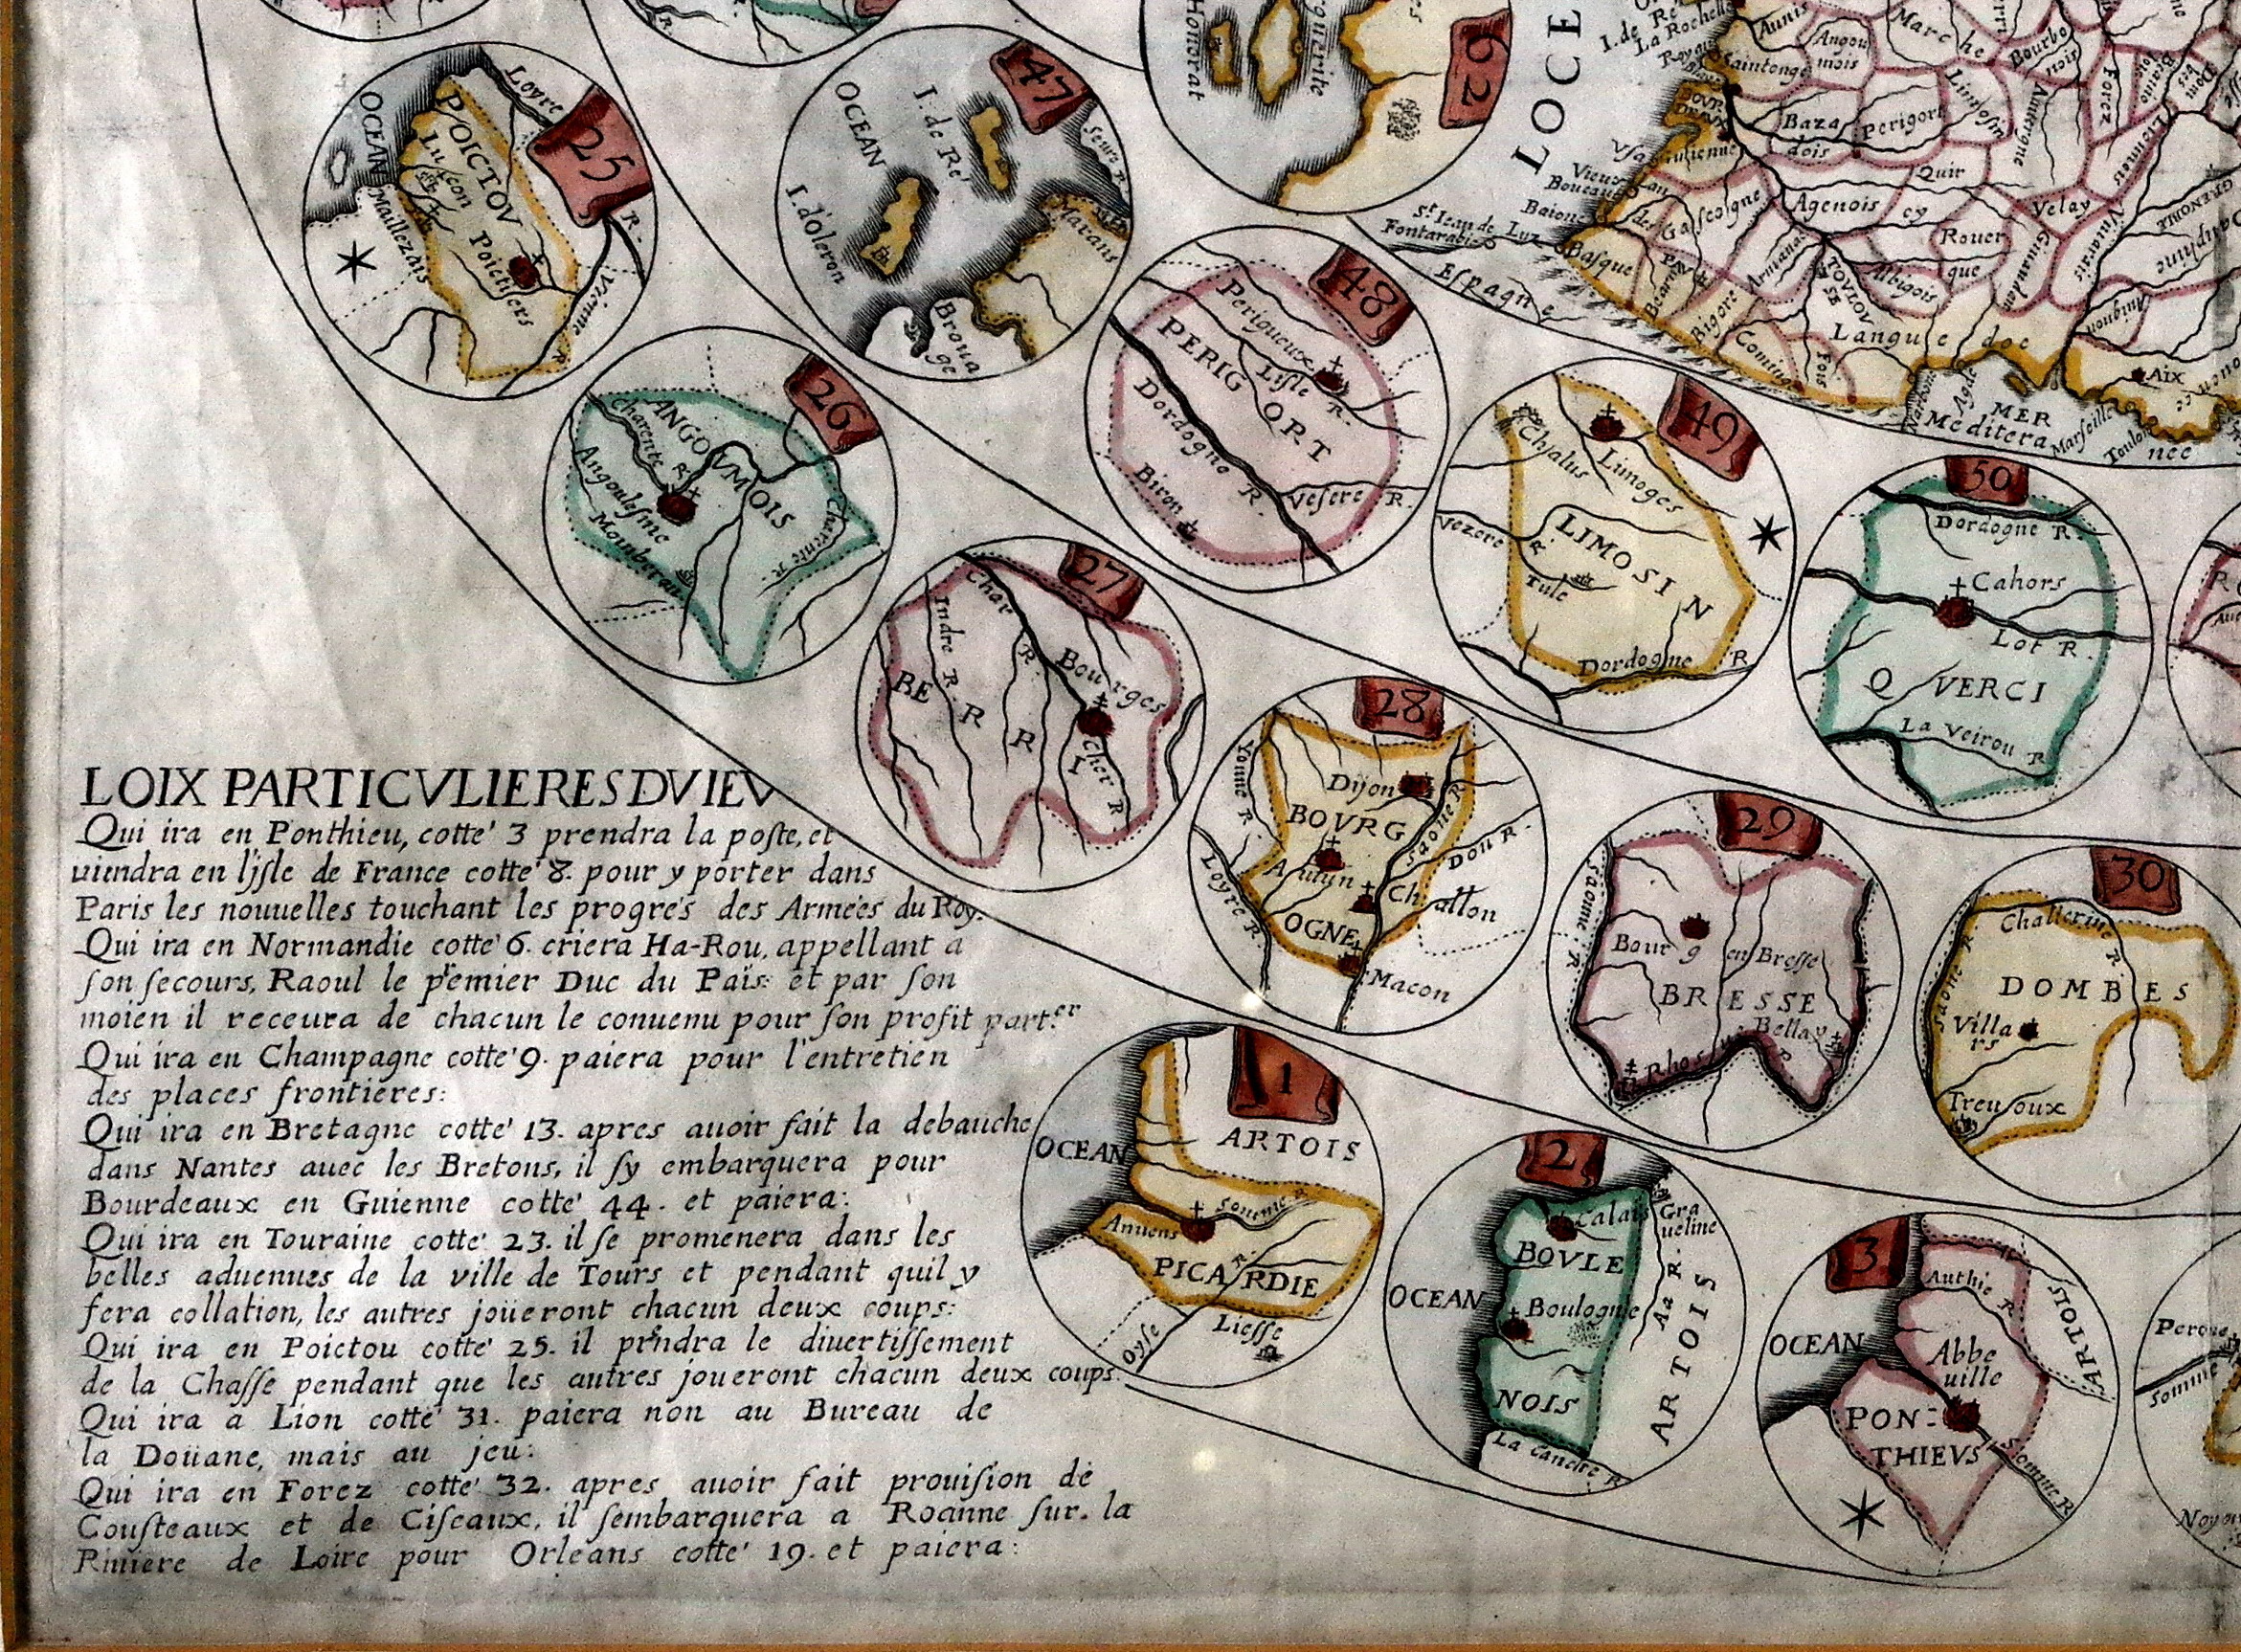 LOIX PARTICVLIERES DV IEV
Qui ira en Ponthieu, cotte' 3 prendra la poſte, et
uiendra en l'iſle de France cotte' 8. pour y porter dans
Paris les nouuelles touchant les progrés des Armées du Roy.
Qui ira en Normandie cotte' 6. criera Ha-Rou, appellant a
ſon ſecours, Raoul le p^remier Duc du Païs: et par ſon
moien il receura de chacun le conuenu pour ſon profit part.er
Qui ira en Champagne cotte' 9. paiera pour l'entretien
des places frontieres:
Qui ira en Bretagne cotte' 13. apres auoir fait la debauche
dans Nantes auec les Bretons, il ſy embarquera pour
Bourdeaux en Guienne cotte' 44. et paiera:
Qui ira en Touraine cotte' 23. il ſe promenera dans les
belles aduenues de la ville de Tours et pendant quil y
fera collation, les autres joüeront chacun deux coups:
Qui ira en Poictou cotte' 25. il prndra le diuertiſſement
de la Chaſſe pendant que les autres joueront chacun deux coups.
Qui ira a Lion cotte' 31. paiera non au Bureau de
la Doüane, mais au jeu:
Qui ira en Forez cotte' 32. apres auoir fait prouiſion de
Couſteaux et de Ciſeaux, il ſembarquera a Roanne ſur. la
Riuiere de Loire pour Orleans cotte' 19. et paiera:
25
Loyre
R.
OCEAN
POICTOV
Luſcon
Maillezais
Poictiers
Vienne
R.
26
ANGOVMOIS
Charente R.
Angouleſme
Mounberau
Charente
R.
27
Char R.
Indre R.
Bourges
BERRI
Cher R
28
Yonne R.
Dijon
BOVRG
Saone R
Don R.
Autun
Challon
Loyre R.
OGNE
Macon
29
Saonne R.
Bourg en Breſſe
BRESSE
Bellay
Rhosne R
30
Challerine R.
Saone R
DOMBES
Villars
Treuſoux
47
OCEAN
I. de Ré
Seure R.
I. d'oleron
Marans
Brouage
62
Honorat
48
Perigueux
PERIGORT
Liſle R.
Dordogne R.
Veſere R.
Biron
49
Chalus
Limoges
LIMOSIN
Vezere R.
Tule
Dordogne R
50
Dordogne R.
Cahors
Lot R.
QVERCI
La Veirou R
1
ARTOIS
OCEAN
Somme R
Amiens
PICARDIE
R.
Oyſe
Lieſſe
2
Calais
Graueline
BOVLE
OCEAN
Boulogne
Aa R.
ARTOIS
NOIS
La Canche R
3
Authie R
ARTOIS
OCEAN
Abbeuille
PON:
THIEVS
Somme R
Somme
LOCE
I. de Ré
La Rochelle
Aunis
Saintonge
Angoumois
Marche
Bourbo
Limosin
Auuergne
Forez
Bazadois
Perigort
Quircy
Velay
Viuarais
Agenois
Rouergue
Gascoigne
Armanac
Albigois
Basque
Bigorre
Coming
Foix
Languedoc
Espagne
Baione
St. Iean de Luz
Fontarabie
Vieux Boucaus
Narbone
Agde
MER
Mediteranée
Marseille
Toulon
Aix
GRENOBLE
Dauphine